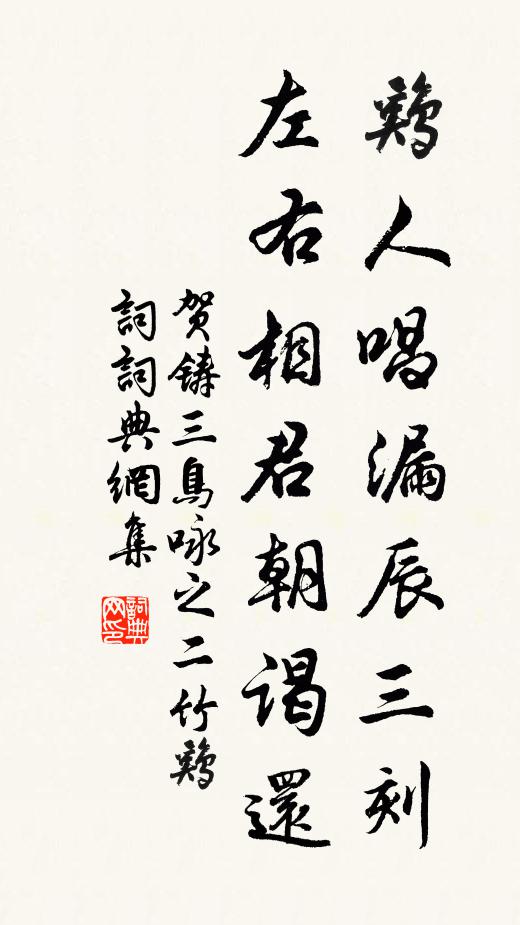 鷄人唱漏辰三刻
左右相君朝谒還
贺鑄三鳥咏之二竹鷄
詞詞典網集
詞典网印